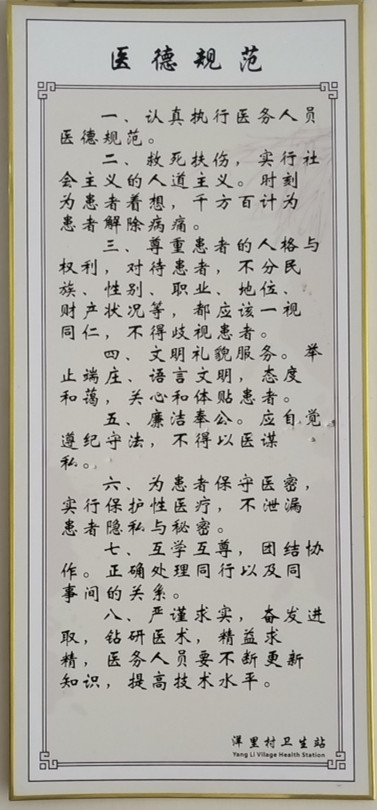 医德规范
一、认真执行医务人员
医德规范。
二、救死扶伤，实行社
会主义的人道主义。时刻
为患者着想，千方百计为
患者解除病痛。
三、尊重患者的人格与
权利，对待患者，不分民
族、性别、职业、地位、
财产状况等，都应该一视
同仁，不得歧视患者。
四、文明礼貌服务。举
止端庄、语言文明，态度
和蔼，关心和体贴患者。
五、廉洁奉公。应自觉
遵纪守法，不得以医谋
私。
六、为患者保守医密，
实行保护性医疗，不泄漏
患者隐私与秘密。
七、互学互尊，团结协
作。正确处理同行以及同
事间的关系。
八、严谨求实，奋发进
取，钻研医术，精益求
精，医务人员要不断更新
知识，提高技术水平。
洋里村卫生站
Yang Li Village Health Station